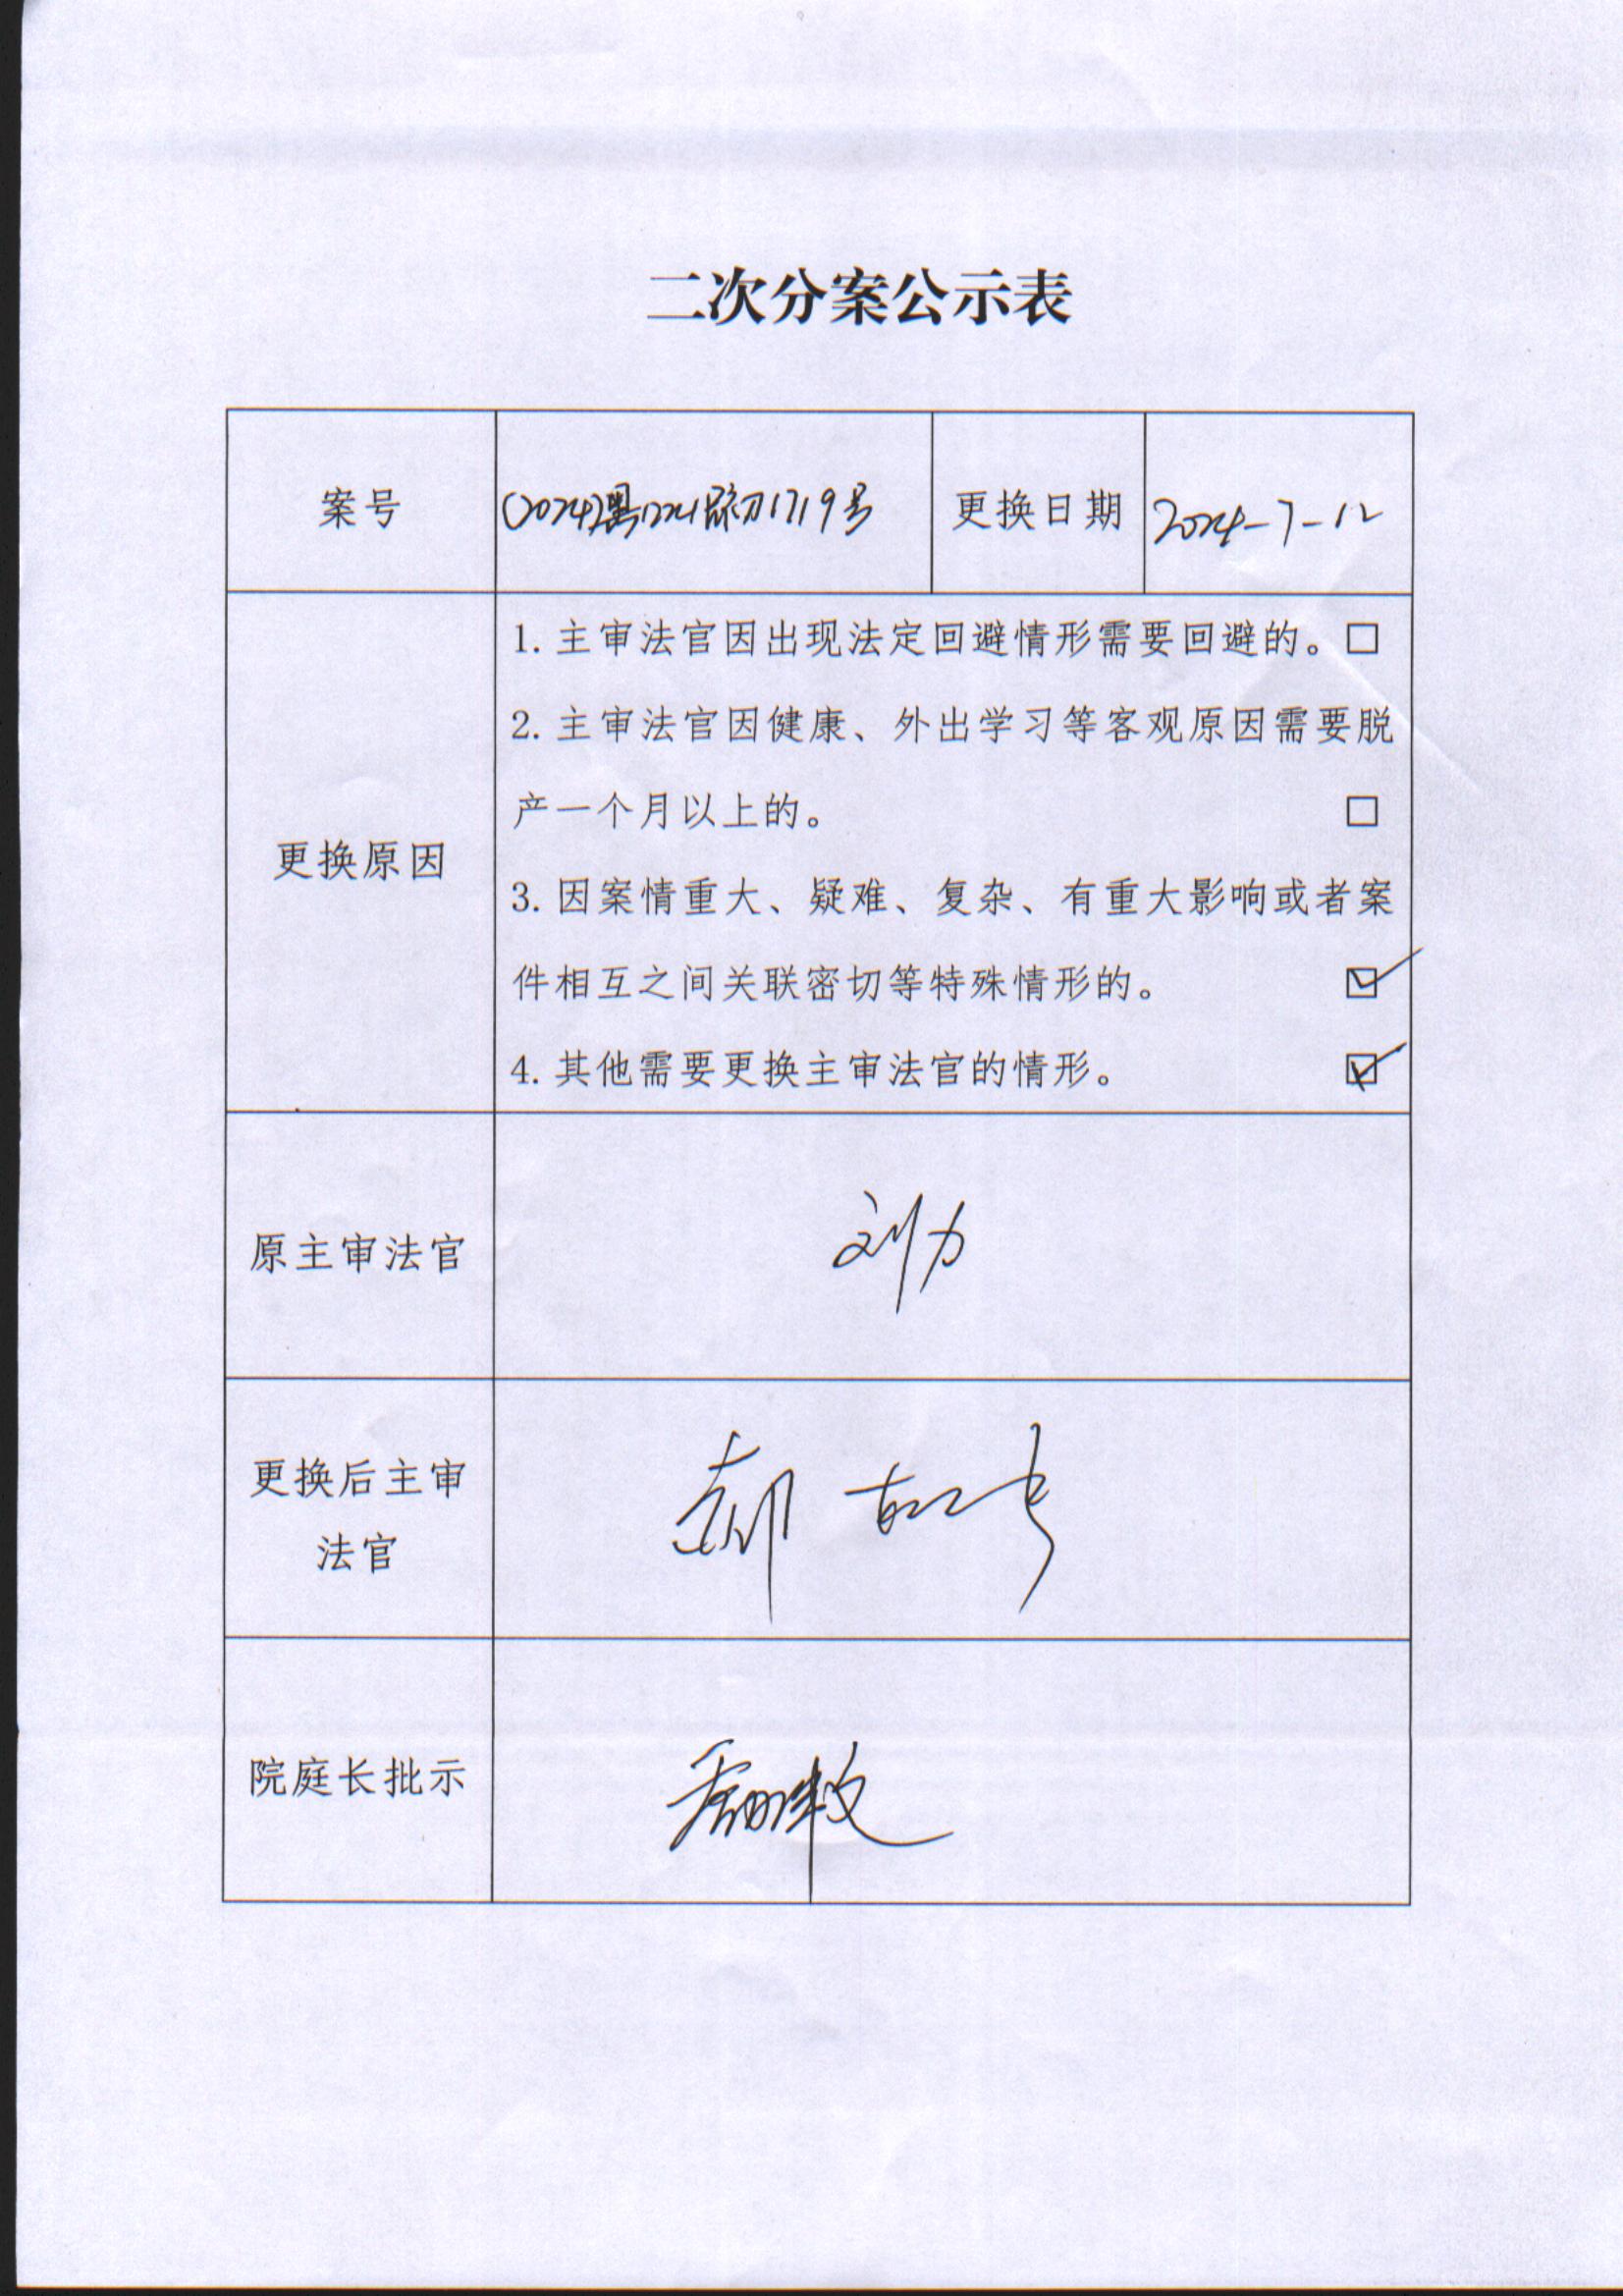 二次分案公示表
案号
(2024)黑1224民初1719号
更换日期
2024-7-12
更换原因
1. 主审法官因出现法定回避情形需要回避的。☐
2. 主审法官因健康、外出学习等客观原因需要脱
产一个月以上的。 ☐
3. 因案情重大、疑难、复杂、有重大影响或者案
件相互之间关联密切等特殊情形的。 ☑
4. 其他需要更换主审法官的情形。 ☑
原主审法官
刘力
更换后主审
法官
郝
院庭长批示